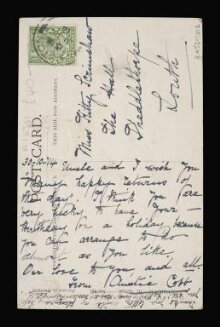 POST CARD.
THIS SIDE FOR ADDRESS.
Miss Kitty Scrimshaw
The Hall
Theddlethorpe
Louth
30-10-14 Auntie and I wish you
Many happy returns of
the day. I think you are
very lucky to have your
birthday for a holiday because
you can arrange to do
almost as you like.
Our Love to you and all
from Auntie Cobb